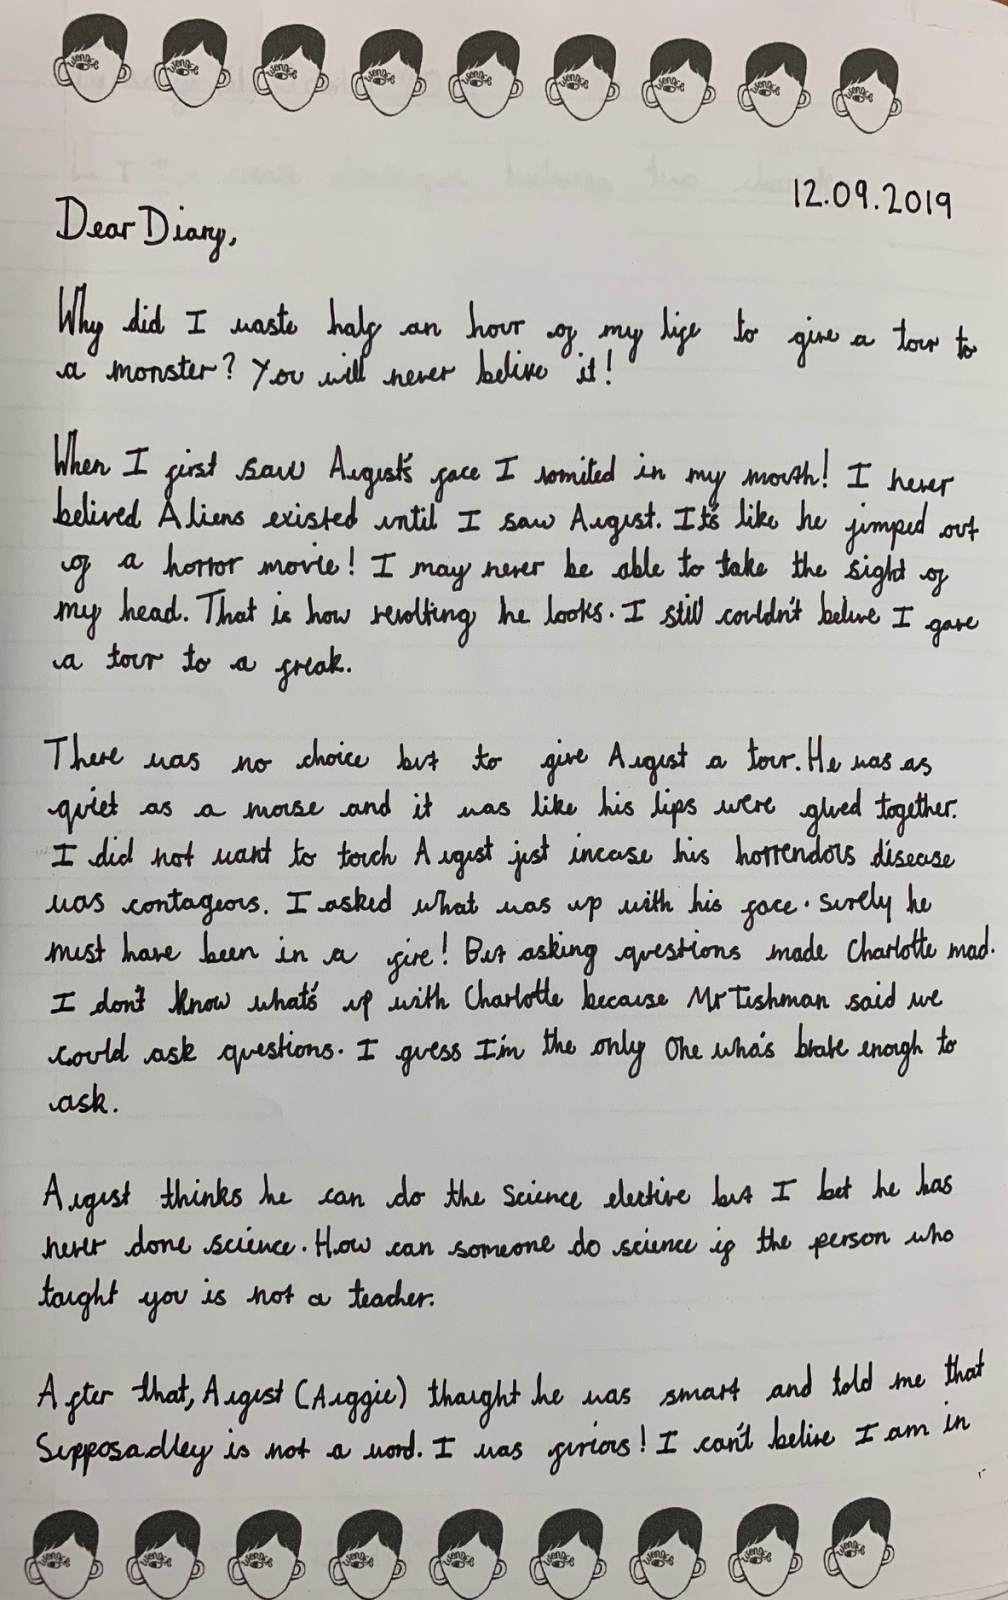 12.09.2019
Dear Diary,
Why did I waste half an hour of my life to give a tour to
a monster? You will never belive it!
When I first saw August's face I vomited in my mouth! I never
belived Aliens existed until I saw August. It's like he jumped out
of a horror movie! I may never be able to take the sight of
my head. That is how revolting he looks. I still couldn't belive I gave
a tour to a freak.
There was no choice but to give August a tour. He was as
quiet as a mouse and it was like his lips were glued together.
I did not want to touch August just incase his horrendous disease
was contageous. I asked what was up with his face. Surely he
must have been in a fire! But asking questions made Charlotte mad.
I don't know what's up with Charlotte because Mr Tushman said we
could ask questions. I guess I'm the only one who's brave enough to
ask.
August thinks he can do the science elective but I bet he has
never done science. How can someone do science if the person who
taught you is not a teacher.
After that, August (Auggie) thaught he was smart and told me that
Supposadley is not a word. I was furious! I can't belive I am in